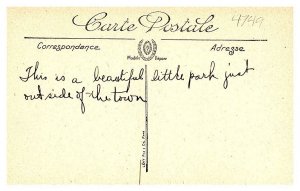 4749
Carte Postale
Correspondance
Adresse
Modèle Déposé
This is a beautiful little park just
outside of the town